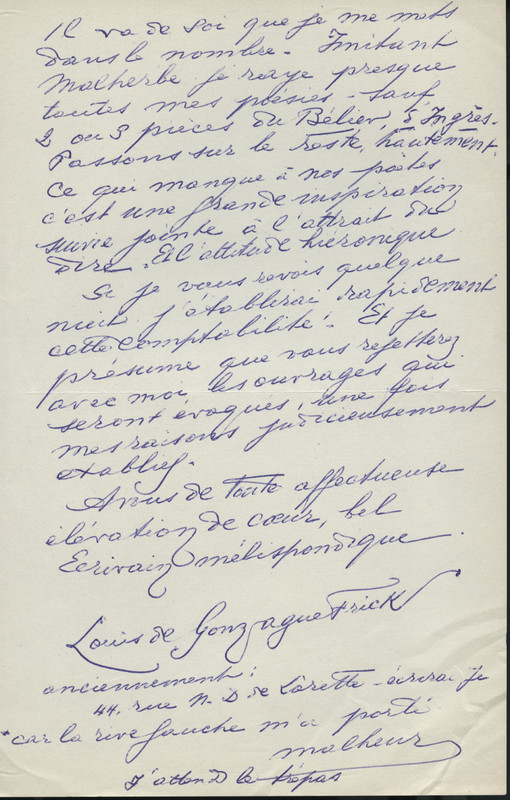 Il va de soi que je me mets
dans le nombre - Imitant
Malherbe je raye presque
toutes mes poésies - sauf
2 ou 3 pièces du Bélier, à Ingrès.
Passons sur le reste, hautement.
Ce qui manque à nos poètes
c'est une grande inspiration
suivie jointe à l'attrait du
dire. Et l'attitude hiéronique
Si je vous revois quelque
nuit j'établirai rapidement
cette comptabilité. Et je
présume que vous rejetterez
avec moi, les ouvrages qui
seront évoqués, une fois
mes raisons judicieusement
établies.
A vous de toute affectueuse
élévation de cœur, bel
Ecrivain mélispondique.
Louis de Gonzague Frick
anciennement:
44, rue N-D de Lorette - écrirai-je
car la rive gauche m'a porté
malheur
J'attends le trépas